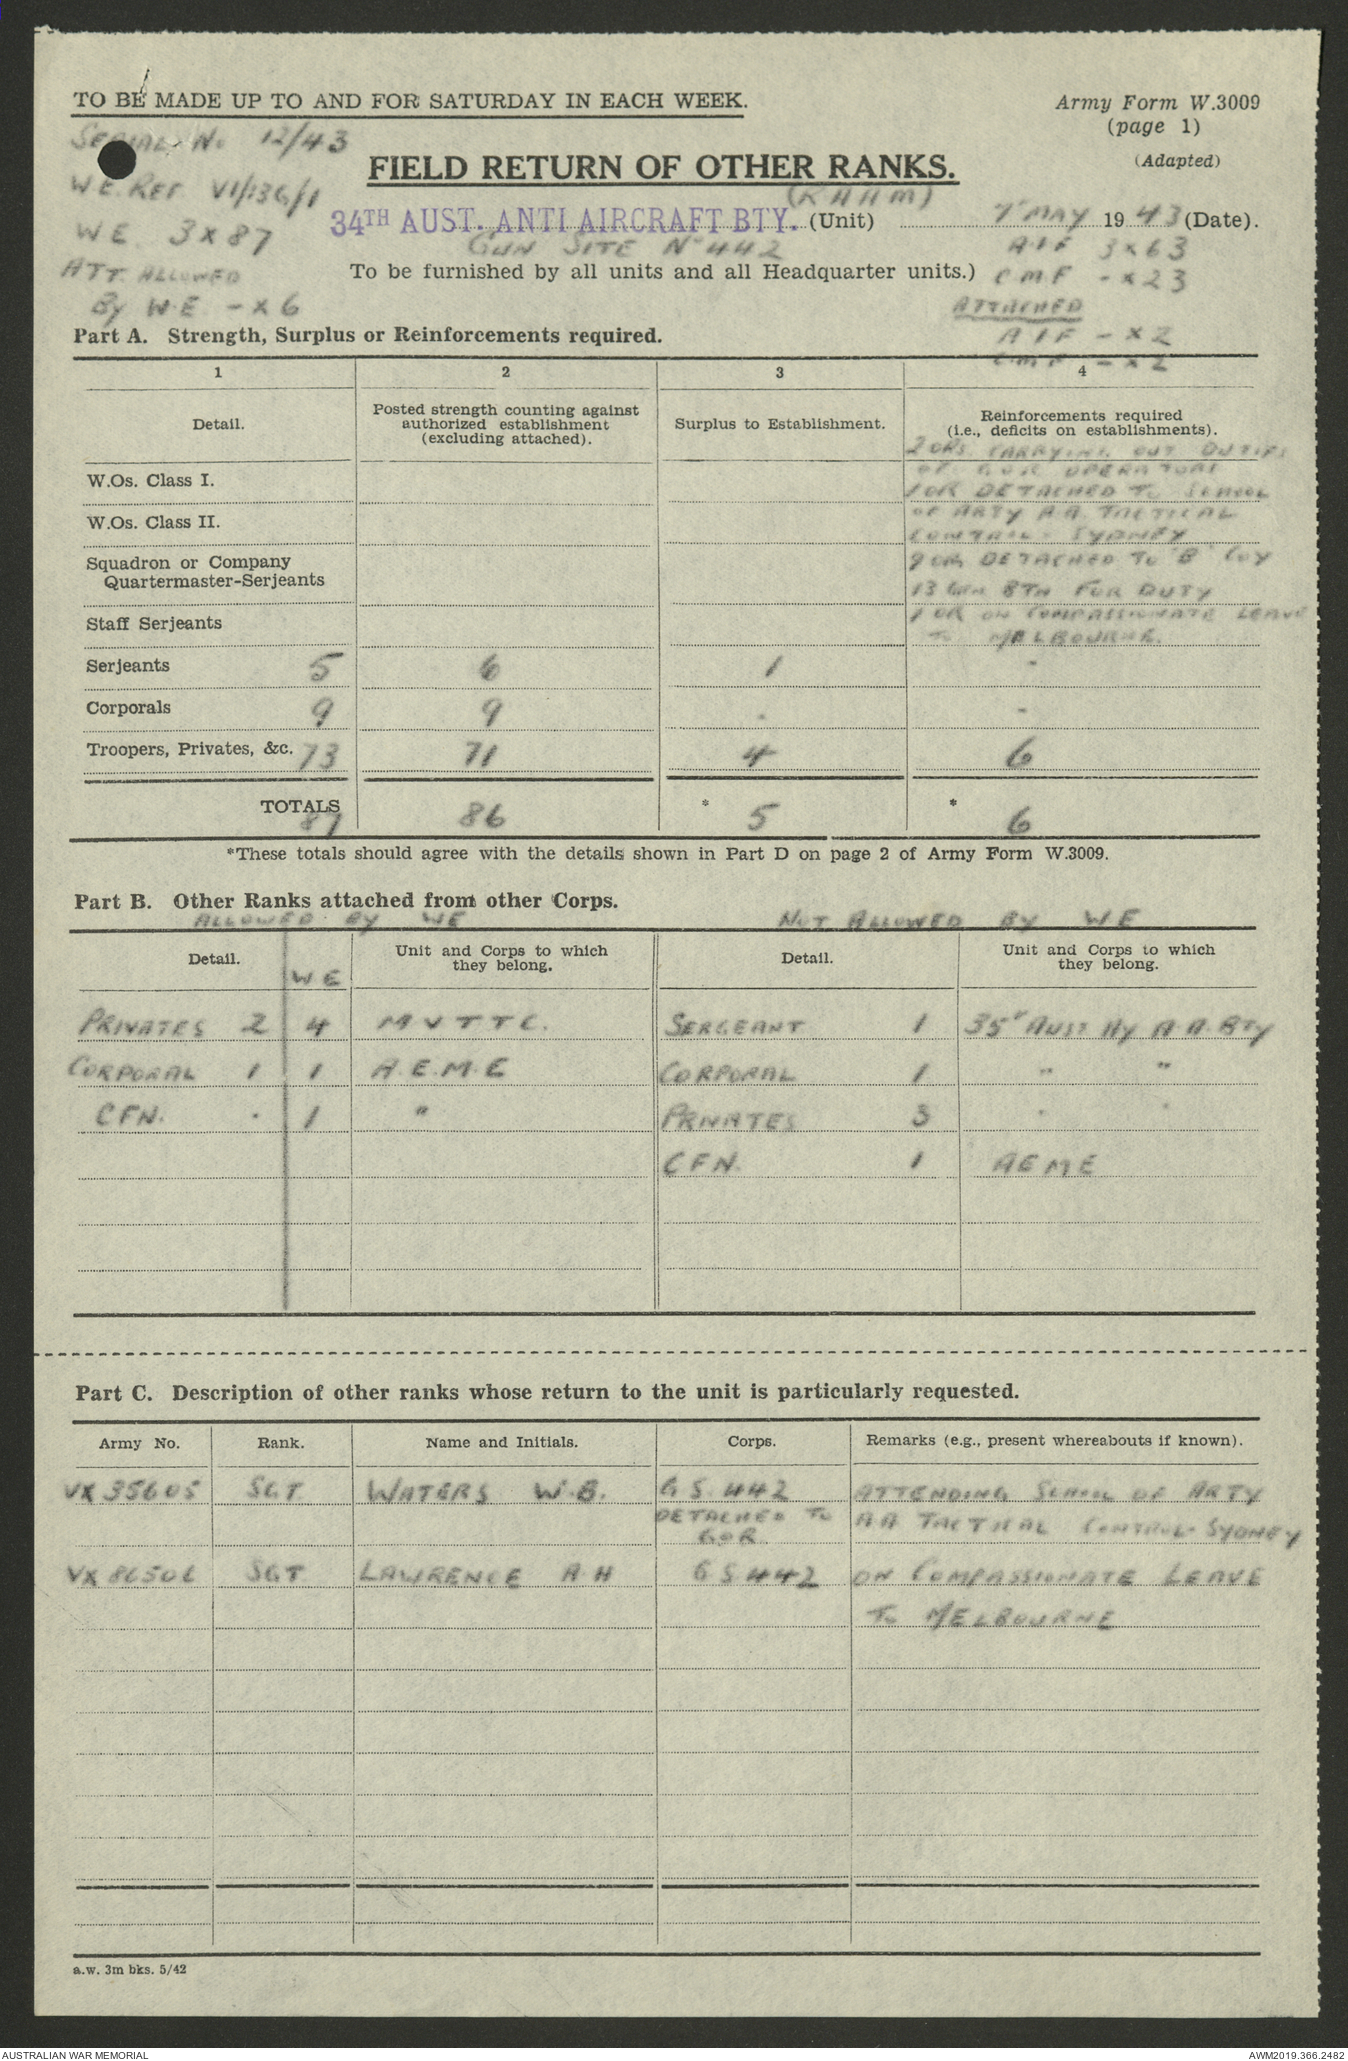 TO BE MADE UP TO AND FOR SATURDAY IN EACH WEEK.
Army Form W.3009
(page 1)
(Adapted)
SERIAL No 12/43
FIELD RETURN OF OTHER RANKS.
W.E. REF VI/136/1
(RAHM)
34TH AUST. ANTI AIRCRAFT BTY. (Unit) 7' MAY 1943 (Date).
W E 3 x 87
GUN SITE No 442
A.I.F 3 x 63
ATT. ALLOWED
To be furnished by all units and all Headquarter units.)
C.M.F - x 23
BY W.E - x 6
ATTACHED
Part A. Strength, Surplus or Reinforcements required.
A I F - x 2
C.M.F - x 2
1 2 3 4
Detail.
Posted strength counting against
authorized establishment
(excluding attached).
Surplus to Establishment.
Reinforcements required
(i.e., deficits on establishments).
2 ORS. CARRYING OUT DUTIES
OF G.O.R OPERATORS
W.Os. Class I.
1 OR DETACHED TO SCHOOL
W.Os. Class II.
OF ARTY A.A. TACTICAL
CONTROL - SYDNEY
Squadron or Company
Quartermaster-Serjeants
9 OR DETACHED TO 'B' COY
13 GRN BTN FOR DUTY
Staff Serjeants
1 OR ON COMPASSIONATE LEAVE
TO MELBOURNE.
Serjeants 5 6 1 -
Corporals 9 9 . -
Troopers, Privates, &c. 73 71 4 6
TOTALS 87 86 * 5 * 6
*These totals should agree with the details shown in Part D on page 2 of Army Form W.3009.
Part B. Other Ranks attached from other Corps.
ALLOWED BY WE
NOT ALLOWED BY W E
Detail. W E
Unit and Corps to which
they belong.
Detail.
Unit and Corps to which
they belong.
PRIVATES 2 4 M V T T C. SERGEANT 1 35' AUST HY A.A. BTY
CORPORAL 1 1 A.E.M.E CORPORAL 1 " "
CFN. . 1 " PRIVATES 3 " "
CFN. 1 AEME
Part C. Description of other ranks whose return to the unit is particularly requested.
Army No. Rank. Name and Initials. Corps. Remarks (e.g., present whereabouts if known).
VX 35605 SGT WATERS W.B. G S. 442 ATTENDING SCHOOL OF ARTY
DETACHED TO AA TACTICAL CONTROL - SYDNEY
GOR
VX 86506 SGT LAWRENCE A H G S 442 ON COMPASSIONATE LEAVE
TO MELBOURNE
a.w. 3m bks. 5/42
AUSTRALIAN WAR MEMORIAL
AWM2019.366.2482